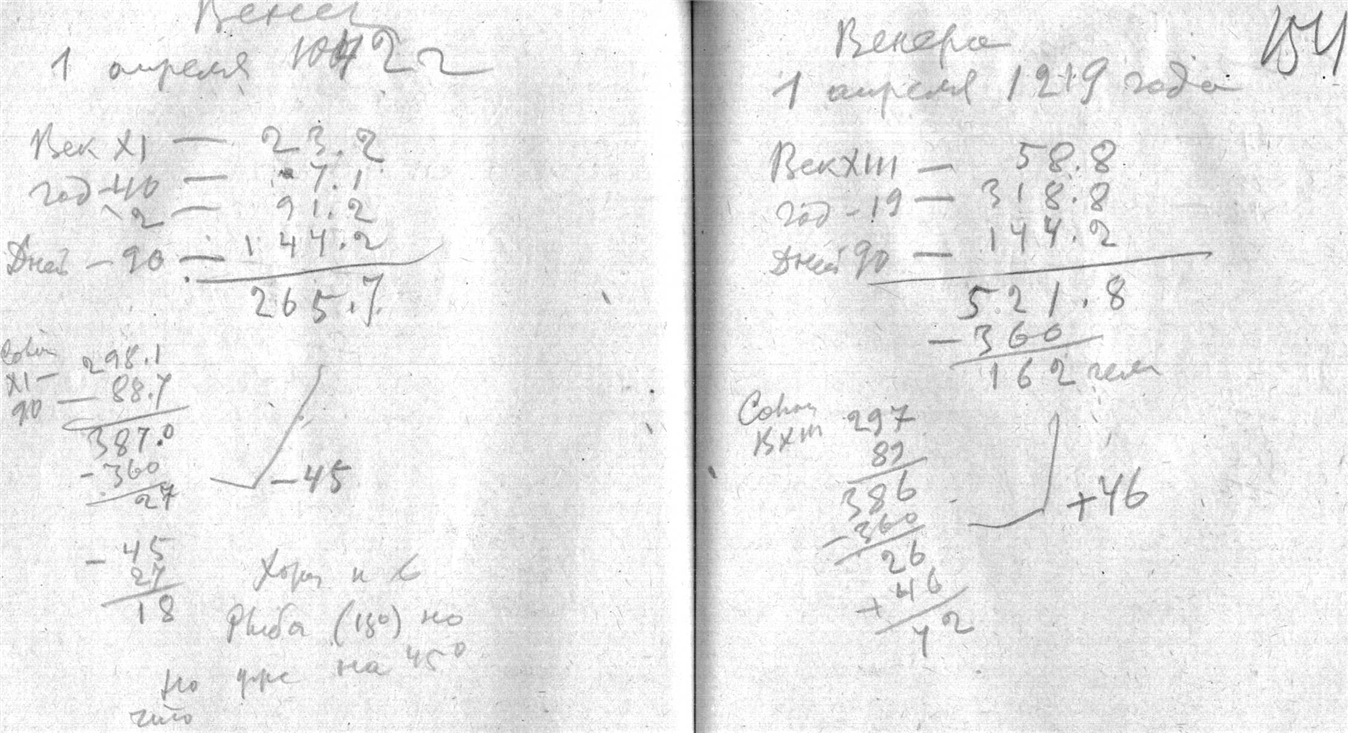 1 апреля 1042 г
Век XI — 23.2
год 40 — 7.1
2 — 91.2
Дней — 90 — 144.2
265.7
298.1
XI —
90 — 88.7
387.0
- 360
27
- 45
- 45
27
18
Рыба (180) но
на 45°
но
что
154
Венера
1 апреля 1219 года
Век XIII — 58.8
год - 19 — 318.8
Дней 90 — 144.2
521.8
- 360
162
297
В XIII
89
386
- 360
26
+ 46
+ 46
72